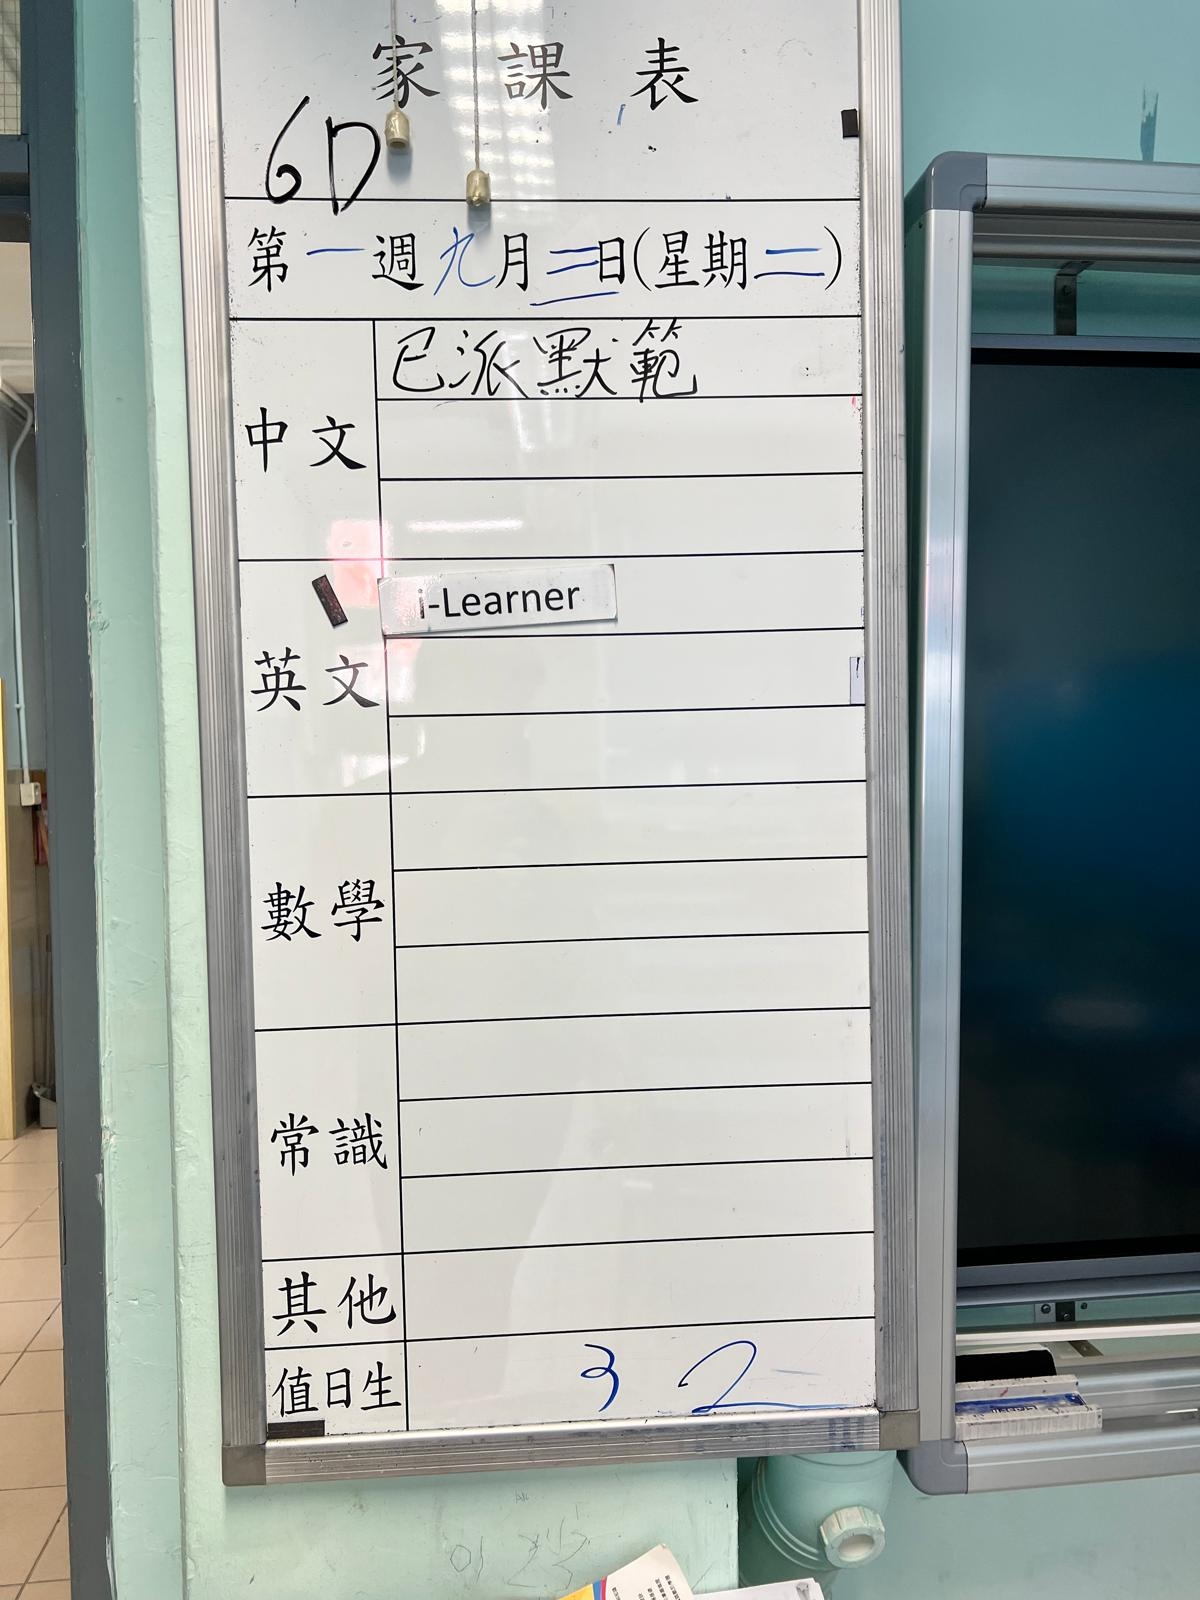 家課表
6D
第一週九月三日(星期二)
中文
已派默範
英文
i-Learner
數學
常識
其他
值日生
3 2